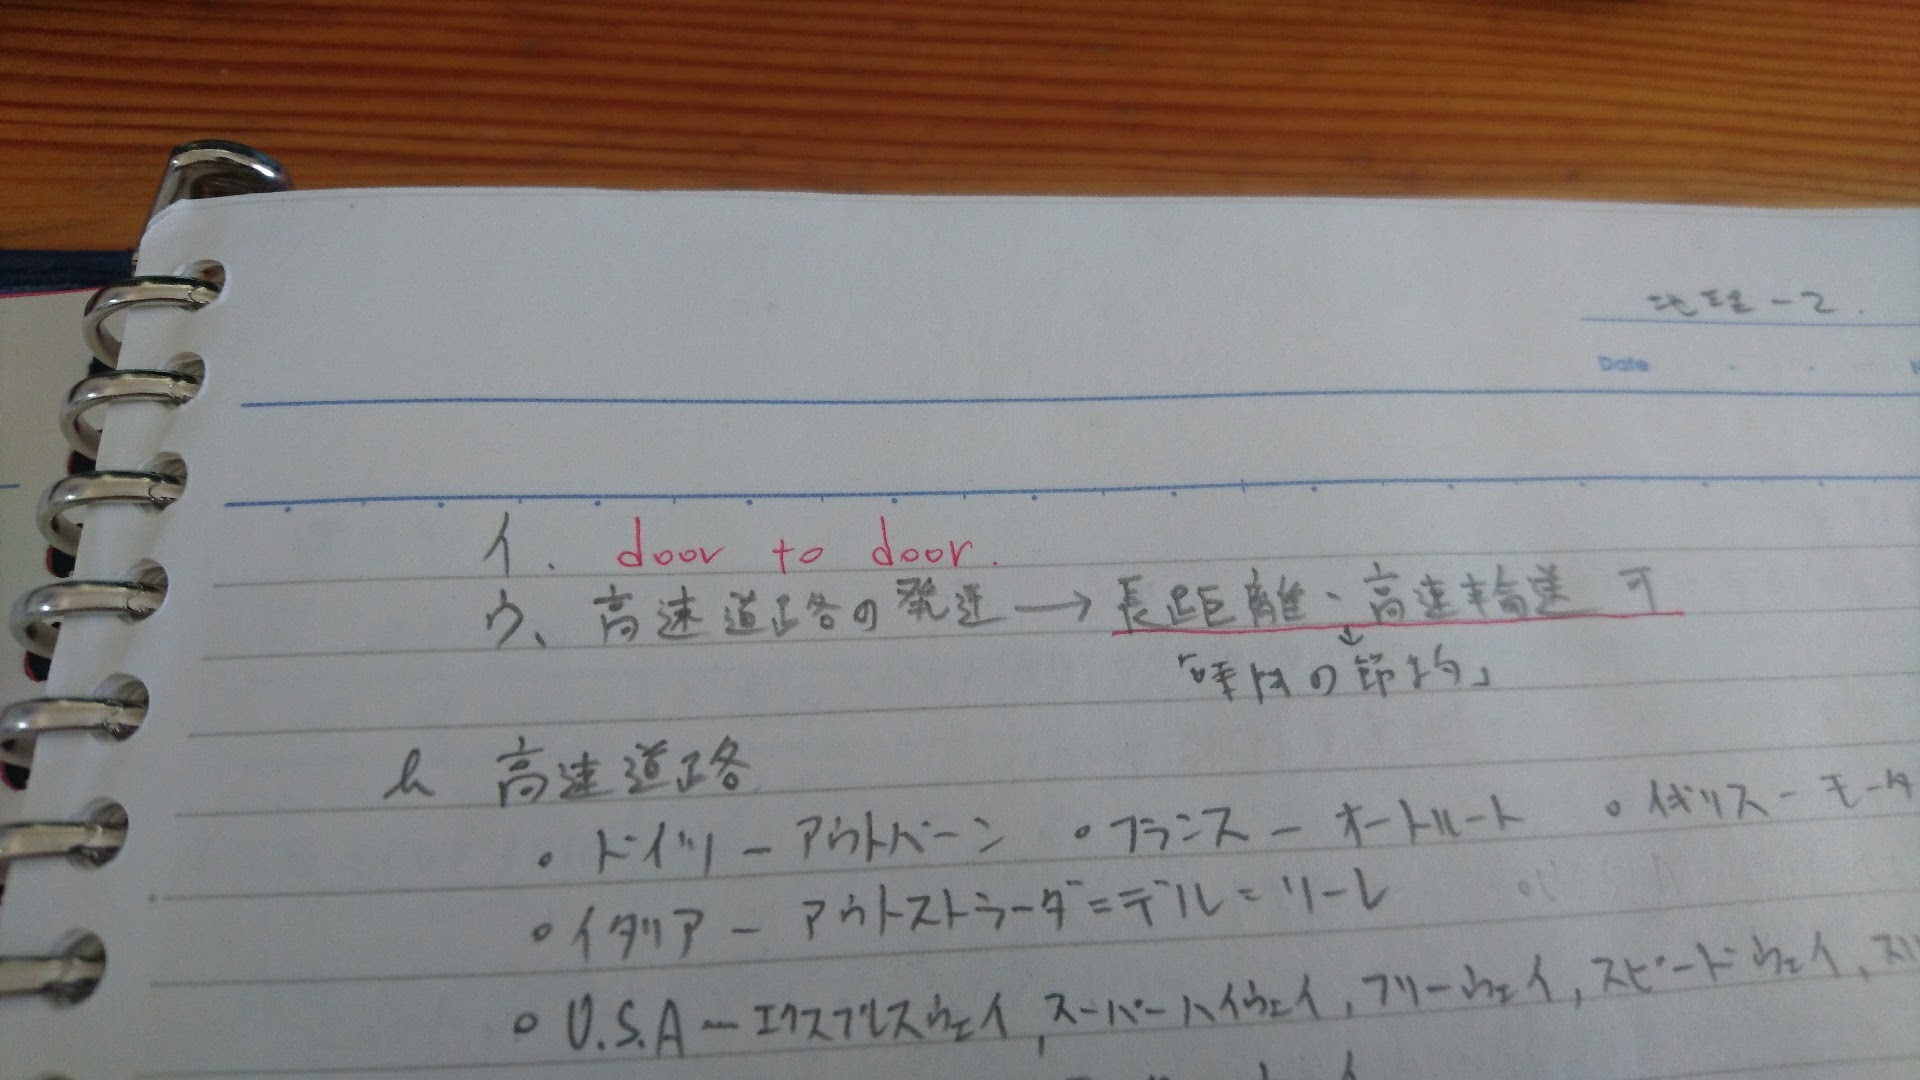 地理-2.
Date
イ. door to door.
ウ、高速道路の発達→長距離、高速輸送 可
↓
「時間の節約」
h 高速道路
• ドイツ - アウトバーン • フランス - オートルート • イギリス - モータ
• イタリア - アウトストラーダ=デル=ソーレ
• U.S.A - エクスプレスウェイ,スーパーハイウェイ,フリーウェイ,スピードウェイ,